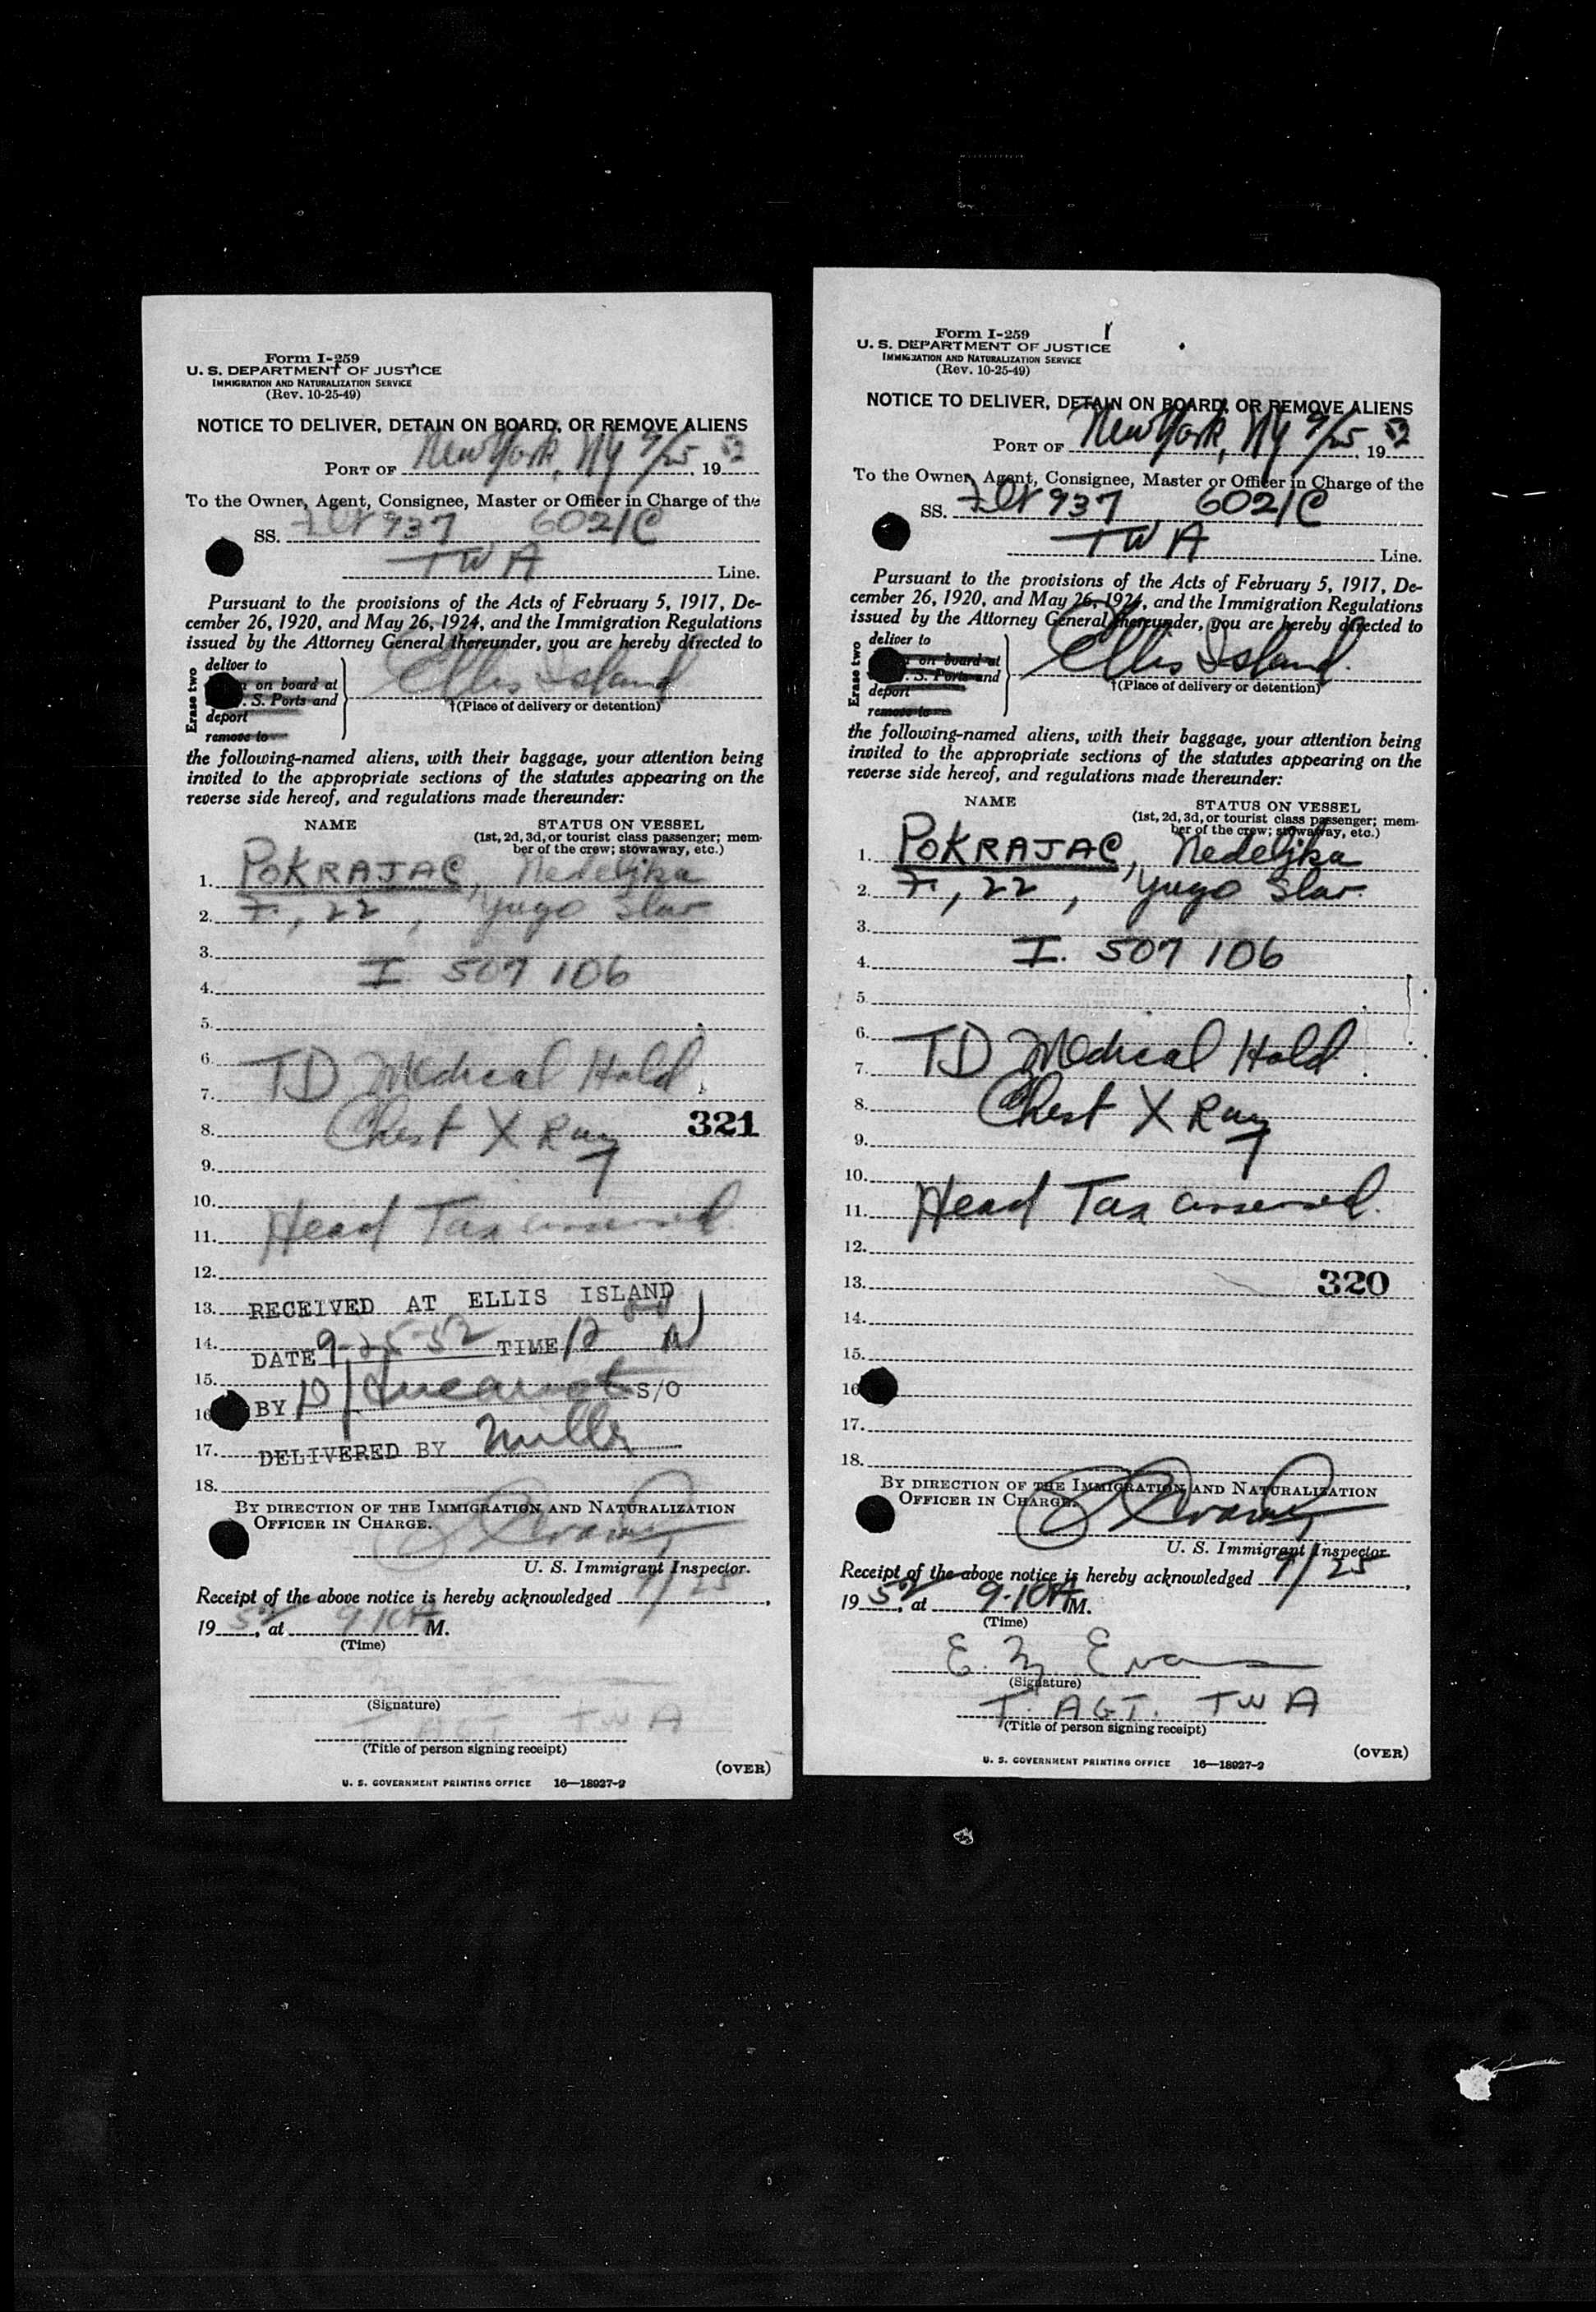 Form I-259
U. S. DEPARTMENT OF JUSTICE
IMMIGRATION AND NATURALIZATION SERVICE
(Rev. 10-25-49)
NOTICE TO DELIVER, DETAIN ON BOARD, OR REMOVE ALIENS
PORT OF New York, NY 9/25 1952
To the Owner, Agent, Consignee, Master or Officer in Charge of the
SS. Flt 937 6021C
TWA Line.
Pursuant to the provisions of the Acts of February 5, 1917, De-
cember 26, 1920, and May 26, 1924, and the Immigration Regulations
issued by the Attorney General thereunder, you are hereby directed to
Erase two
deliver to
on board at
S. Ports and
deport
remove to
Ellis Island
†(Place of delivery or detention)
the following-named aliens, with their baggage, your attention being
invited to the appropriate sections of the statutes appearing on the
reverse side hereof, and regulations made thereunder:
NAME STATUS ON VESSEL
(1st, 2d, 3d, or tourist class passenger; mem-
ber of the crew; stowaway, etc.)
1. POKRAJAC, Nedeljka
2. F, 22, Yugo Slav
3.
4. I 507 106
5.
6.
7. TD Medical Hold
8. Chest X Ray 321
9.
10.
11. Head Tax assessed
12.
13. RECEIVED AT ELLIS ISLAND
14. DATE 9-25-52 TIME 12 M
15.
16. BY S/O
17. DELIVERED BY Miller
18.
BY DIRECTION OF THE IMMIGRATION AND NATURALIZATION
OFFICER IN CHARGE.
U. S. Immigrant Inspector.
Receipt of the above notice is hereby acknowledged 9/25,
1952, at 9-10A M.
(Time)
(Signature)
T. AGT. TWA
(Title of person signing receipt)
(OVER)
U. S. GOVERNMENT PRINTING OFFICE 16—18927-2
Form I-259
U. S. DEPARTMENT OF JUSTICE
IMMIGRATION AND NATURALIZATION SERVICE
(Rev. 10-25-49)
NOTICE TO DELIVER, DETAIN ON BOARD, OR REMOVE ALIENS
PORT OF New York, NY 9/25, 1952
To the Owner, Agent, Consignee, Master or Officer in Charge of the
SS. Flt 937 6021C
TWA Line.
Pursuant to the provisions of the Acts of February 5, 1917, De-
cember 26, 1920, and May 26, 1924, and the Immigration Regulations
issued by the Attorney General thereunder, you are hereby directed to
Erase two
deliver to
on board at
S. Ports and
deport
remove to
Ellis Island.
†(Place of delivery or detention)
the following-named aliens, with their baggage, your attention being
invited to the appropriate sections of the statutes appearing on the
reverse side hereof, and regulations made thereunder:
NAME STATUS ON VESSEL
(1st, 2d, 3d, or tourist class passenger; mem-
ber of the crew; stowaway, etc.)
1. POKRAJAC, Nedeljka
2. F, 22, Yugo Slav.
3.
4. I. 507 106
5.
6.
7. TD Medical Hold
8. Chest X Ray
9.
10.
11. Head Tax assessed.
12.
13. 320
14.
15.
16
17.
18.
BY DIRECTION OF THE IMMIGRATION AND NATURALIZATION
OFFICER IN CHARGE.
U. S. Immigrant Inspector.
Receipt of the above notice is hereby acknowledged 9/25,
1952, at 9-10A M.
(Time)
E. M Evans
(Signature)
T. AGT. TWA
(Title of person signing receipt)
(OVER)
U. S. GOVERNMENT PRINTING OFFICE 16—18927-2